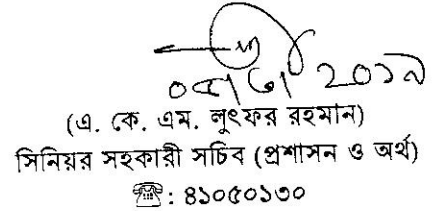 (এ. কে. এম. লুৎফর রহমান)
সিনিয়র সহকারী সচিব (প্রশাসন ও অর্থ)
☎: ৪১০৫০১৩০